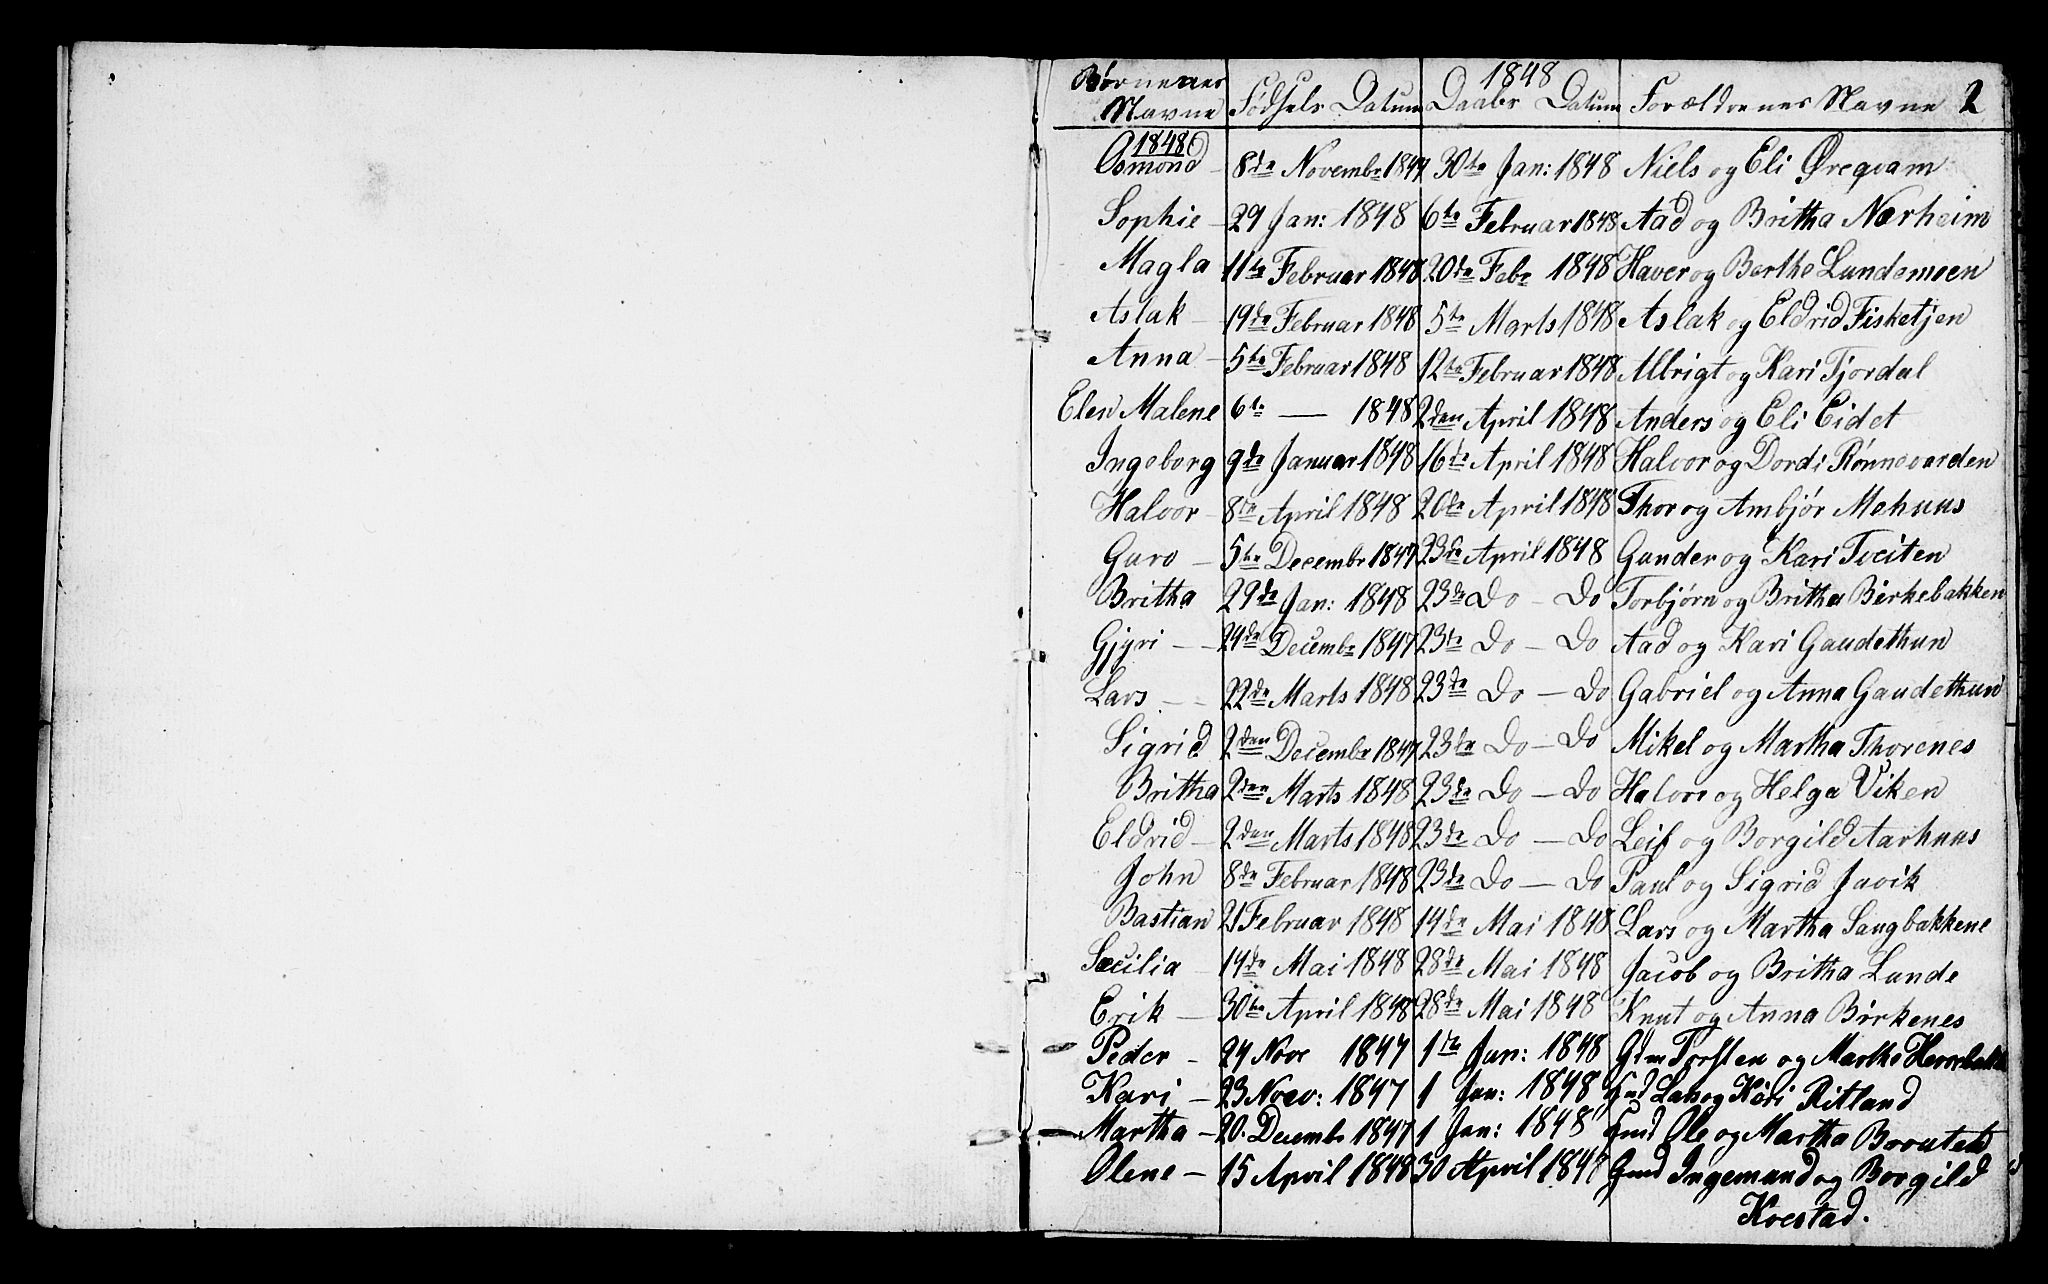 1848
Børnenes Navne Fødsels Datum Daabs Datum Forældrenes Navne 2
1848
Osmond - 8de Novembr 1847 30te Jan: 1848 Niels og Eli Øreqvam
Sophie - 29 Jan: 1848 6te Februar 1848 Aad og Britha Nærheim
Magla 11te Februar 1848 20de Febr 1848 Haver og Berthe Lundemoen
Aslak - 19de Februar 1848 5te Marts 1848 Aslak og Eldrid Fisketjen
Anna - 5te Februar 1848 12te Februar 1848 Albrigt og Kari Tjordal
Elen Malene 6te — 1848 2den April 1848 Anders og Eli Eidet
Ingeborg 9de Januar 1848 16de April 1848 Halvor og Dordi Rønnevarden
Halvor - 8de April 1848 20de April 1848 Thor og Ambjør Mehuus
Guro - 5te Decembr 1847 23de April 1848 Gunder og Kari Tveiten
Britha 29de Jan: 1848 23de Do - Do Torbjørn og Britha Birkebakken
Gjyri - - 24de Decembr 1847 23de Do - Do Aad og Kari Gaudethun
Lars - - 22de Marts 1848 23de Do - Do Gabriel og Anna Gaudethun
Sigrid 2den Decembr 1847 23de Do - Do Mikel og Martha Thorenes
Britha 2den Marts 1848 23de Do - Do Halvor og Helga Viken
Eldrid - 2den Marts 1848 23de Do - Do Leif og Borgild Aarhuus
John 8de Februar 1848 23de Do - Do Paul og Sigrid Juvik
Bastian 21 Februar 1848 14de Mai 1848 Lars og Martha Sangbakkene
Sæcilia - 14de Mai 1848 28de Mai 1848 Jacob og Britha Lunde
Erik - 30te April 1848 28de Mai 1848 Knut og Anna Birkenes
Peder - 24 Novr 1847 1te Jan: 1848 Gdm Torsten og Marthe
Kari - 23 Novr: 1847 1 Jan: 1848 og Kari Ritland
Martha - 20. Decembr 1847 1 Jan: 1848 Ole og Martha
Olene - 15 April 1848 30 April 1848 Gmd Ingemund og Borgild
Kvestad.